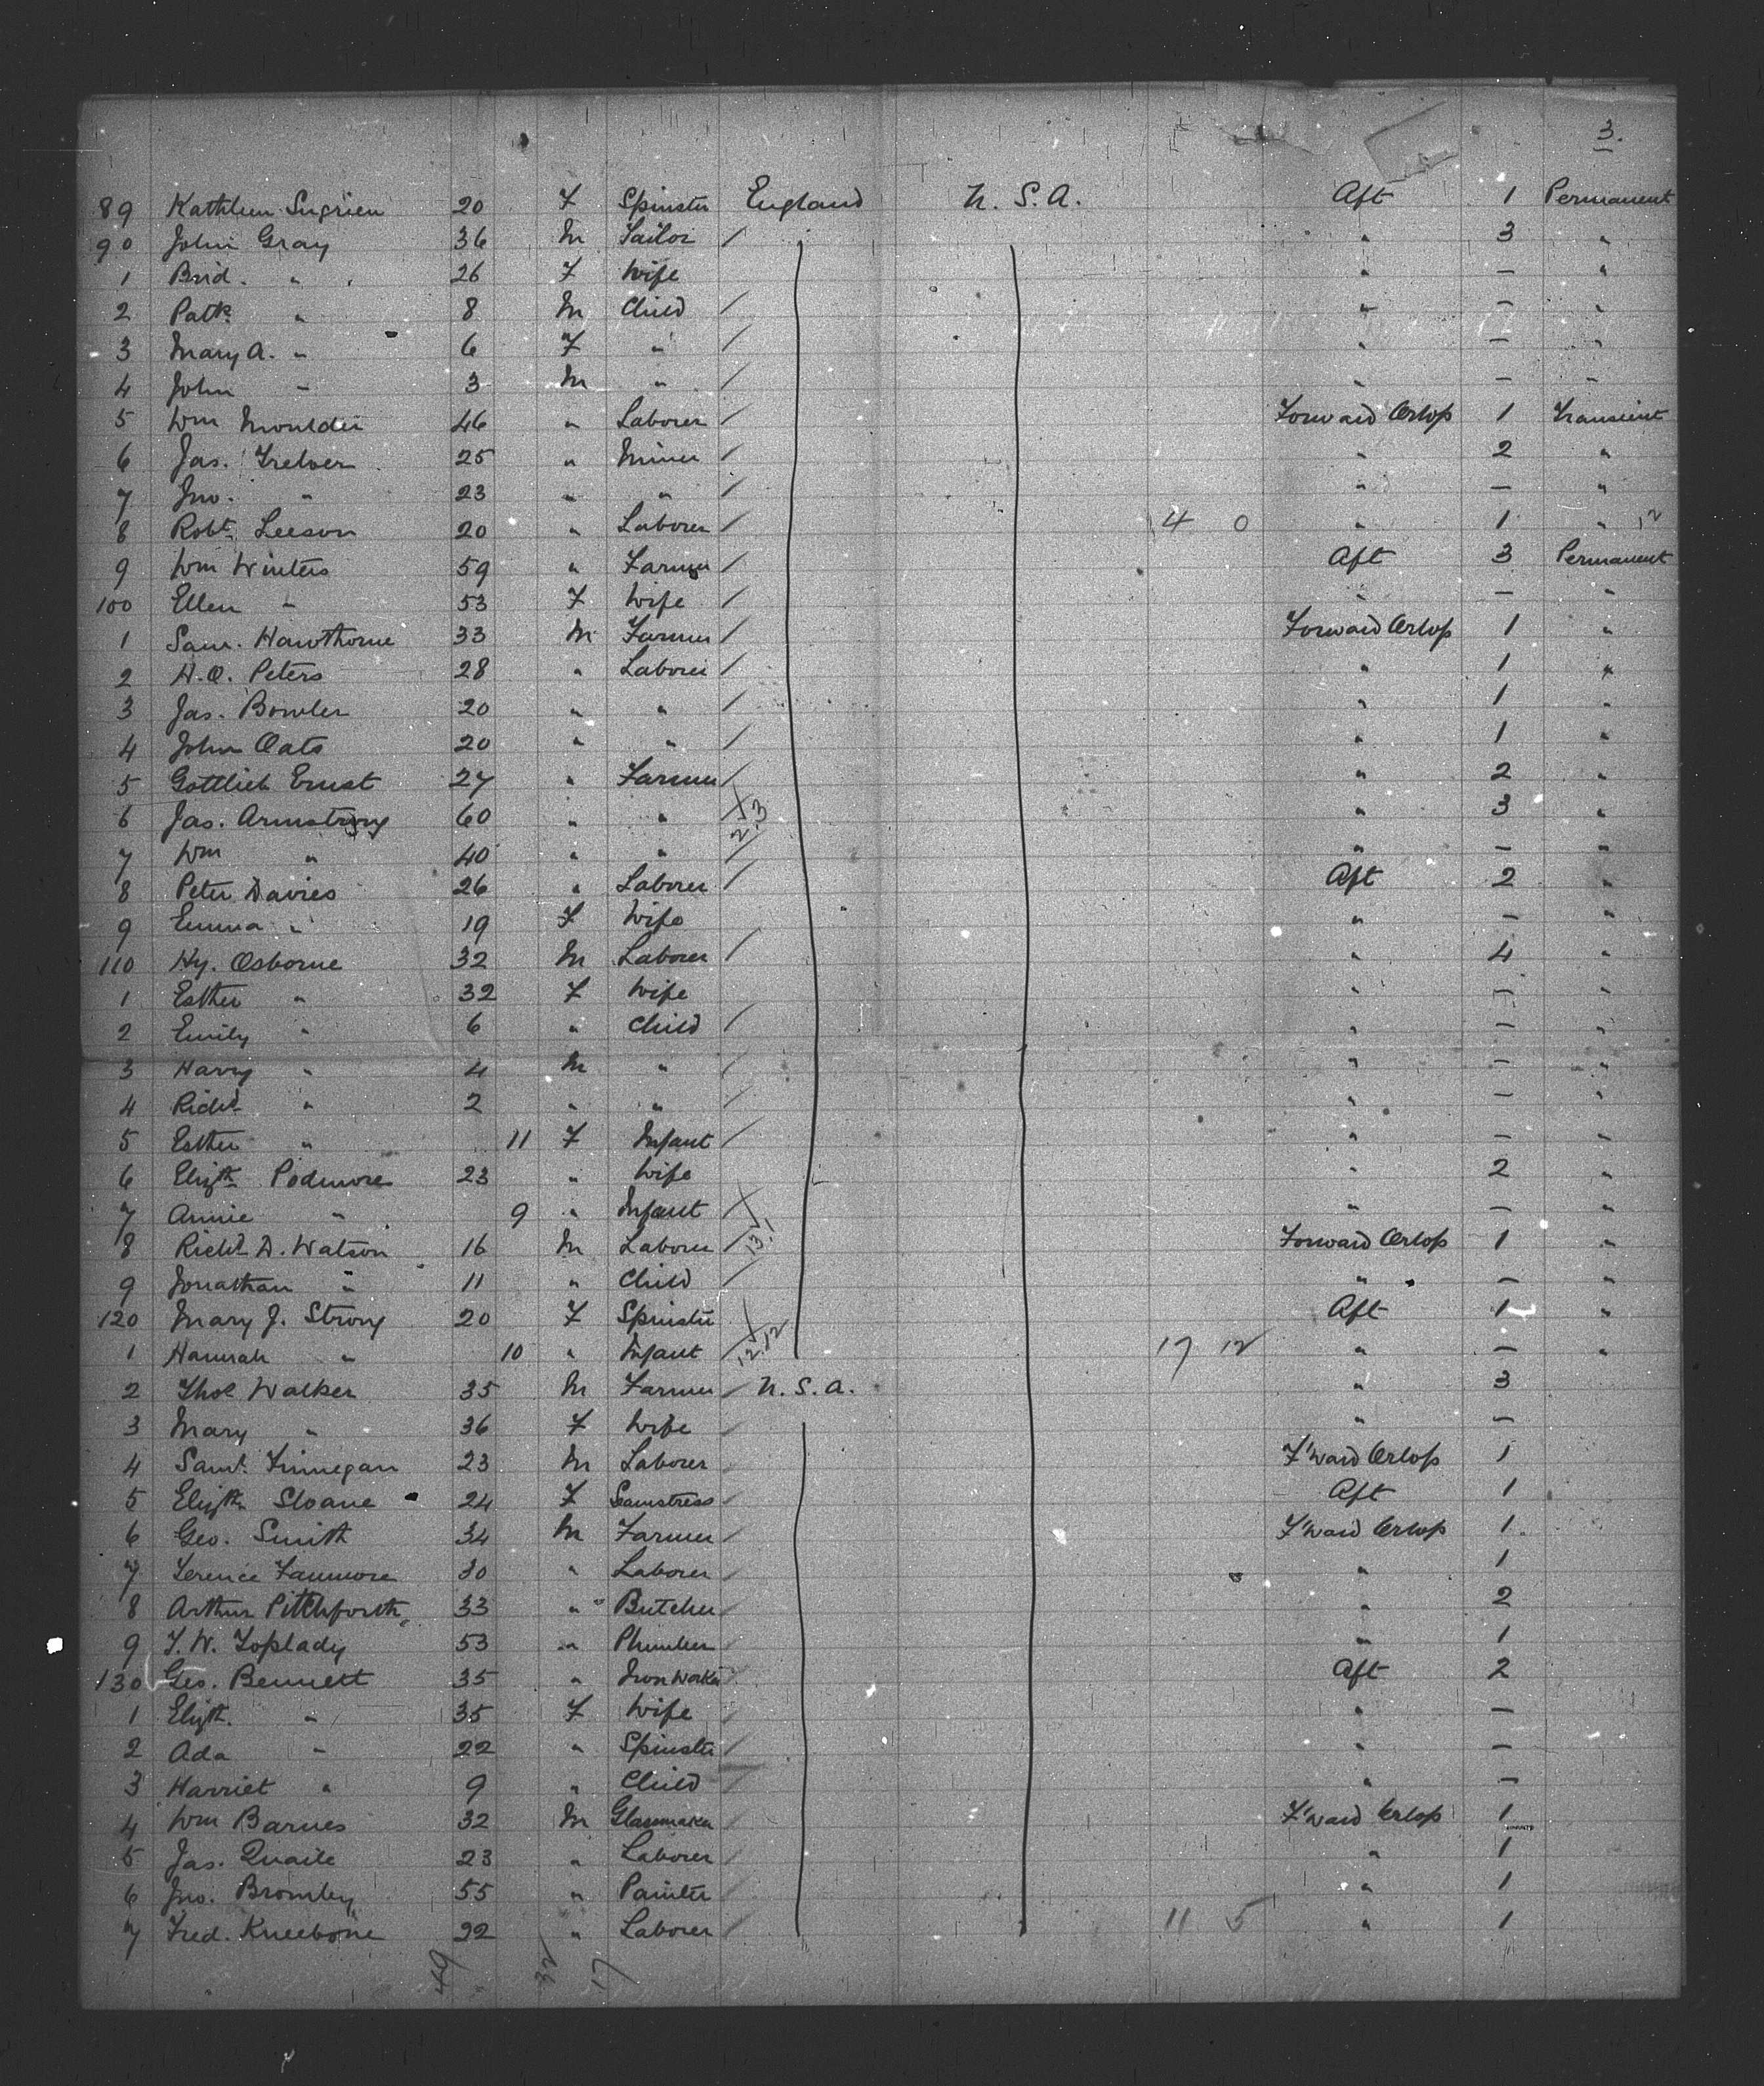 3.
89 Kathleen Sugrien 20 F Spinster England U.S.A. Aft 1 Permanent
90 John Gray 36 M Tailor / " 3 "
1 Brid. " 26 F Wife " — "
2 Patk. " 8 M Child / " — "
3 Mary A. " 6 F " / " — "
4 John " 3 M " / " — "
5 Wm Moulder 46 " Laborer / Forward Orlop 1 Transient
6 Jas. Trelver 25 " Miner / " 2 "
7 Jno. " 23 " " / " — "
8 Robt. Leeson 20 " Laborer / 4 0 " 1 " 12
9 Wm Winters 59 " Farmer / Aft 3 Permanent
100 Ellen " 53 F Wife / " — "
1 Sam. Hawthorne 33 M Farmer / Forward Orlop 1 "
2 H.O. Peters 28 " Laborer / " 1 "
3 Jas. Bowler 20 " " / " 1 "
4 John Oats 20 " " / " 1 "
5 Gottlieb Ernst 27 " Farmer / " 2 "
6 Jas. Armstrong 60 " " X 2.3 " 3 "
7 Wm " 40 " " / " — "
8 Peter Davies 26 " Laborer / Aft 2 "
9 Emma " 19 F Wife " — "
110 Hy. Osborne 32 M Laborer / " 4 "
1 Esther " 32 F Wife " — "
2 Emily " 6 " Child / " — "
3 Harry " 4 M " / " — "
4 Richd " 2 " " / " — "
5 Esther " 11 F Infant / " — "
6 Elizth Podmore 23 " Wife " 2 "
7 Annie " 9 " Infant X " — "
8 Richd D. Watson 16 M Laborer / 13.1 Forward Orlop 1 "
9 Jonathan " 11 " Child / " — "
120 Mary J. Strong 20 F Spinster X Aft 1 "
1 Hannah " 10 " Infant / 12.12 17 12 " — "
2 Thos Walker 35 M Farmer / U.S.A. " 3
3 Mary " 36 F Wife / " —
4 Saml. Finnegan 23 M Laborer / F'ward Orlop 1
5 Elizth Sloane 24 F Seamstress / Aft 1
6 Geo. Smith 34 M Farmer / F'ward Orlop 1
7 Terence Fanmore 30 " Laborer / " 1
8 Arthur Pitchforth 33 " Butcher / " 2
9 T.W. Toplady 53 " Plumber / " 1
130 Geo. Bennett 35 " Iron Worker / Aft 2
1 Elizth. " 35 F Wife / " —
2 Ada " 22 " Spinster / " —
3 Harriet " 9 " Child / " —
4 Wm Barnes 32 M Glassmaker / F'ward Orlop 1
5 Jas. Quaile 23 " Laborer / " 1
6 Jno. Bromley 55 " Painter / " 1
7 Fred. Kneebone 22 " Laborer / 11 5 " 1
49 32 17